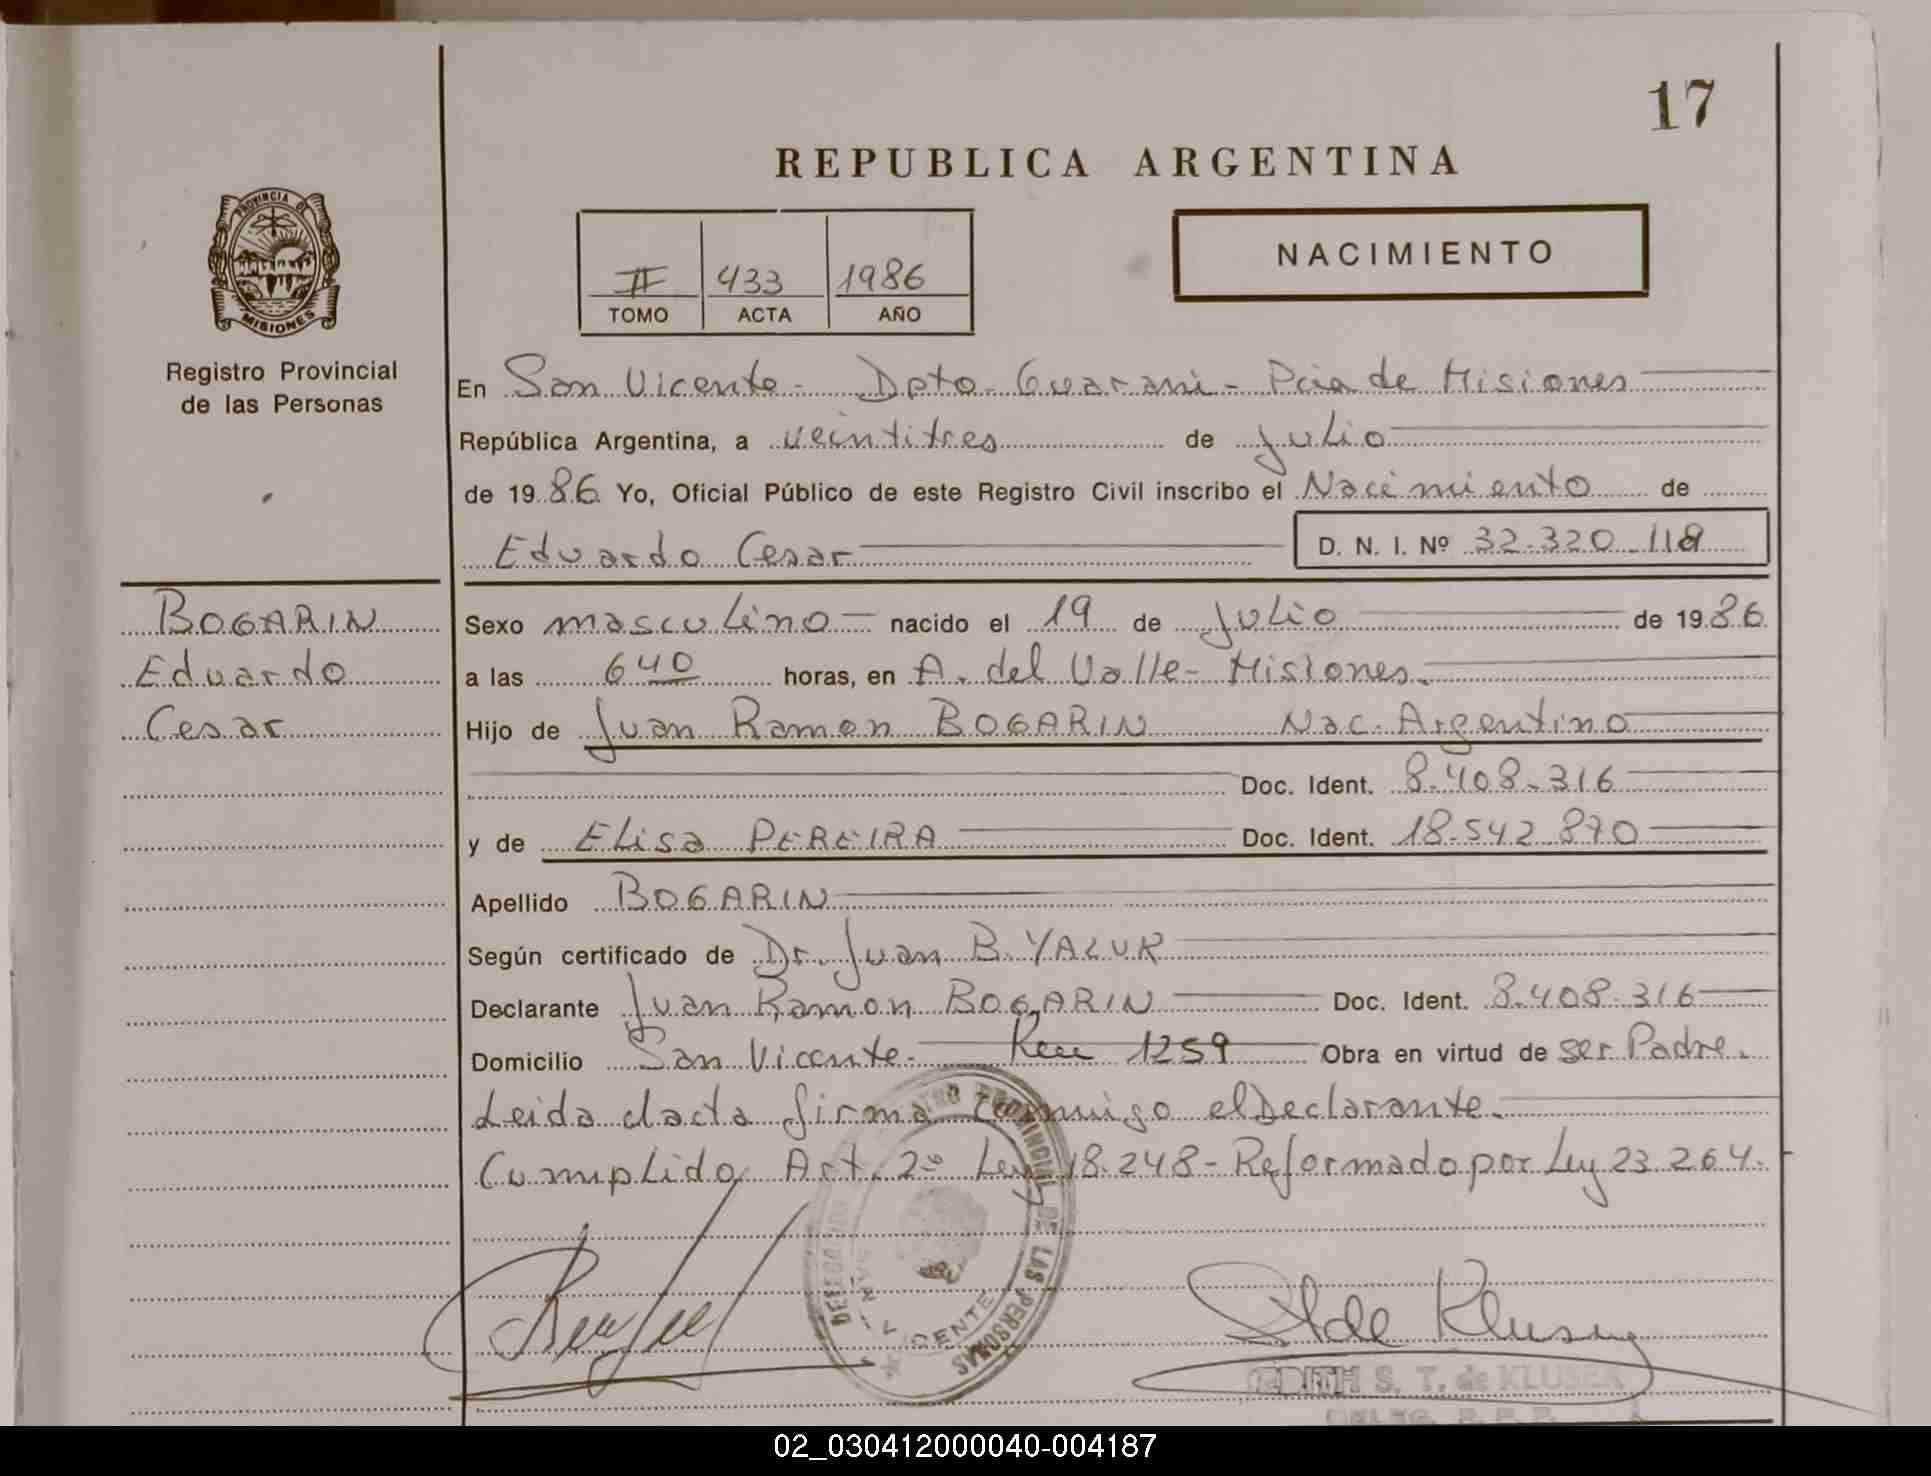 17
REPUBLICA ARGENTINA
PROVINCIA DE
MISIONES
Registro Provincial
de las Personas
II 433 1986
TOMO ACTA AÑO
NACIMIENTO
En San Vicente - Dpto - Guarani - Pcia de Misiones
República Argentina, a veintitres de julio
de 1986 Yo, Oficial Público de este Registro Civil inscribo el Nacimiento de
Eduardo Cesar D. N. I. Nº 32.320.118
BOGARIN
Eduardo
Cesar
Sexo masculino nacido el 19 de julio de 1986
a las 6 40 horas, en A. del Valle - Misiones.
Hijo de Juan Ramon BOGARIN Nac. Argentino
Doc. Ident. 8.408.316
y de Elisa PEREIRA Doc. Ident. 18.542.870
Apellido BOGARIN
Según certificado de Dr. Juan B. YALUK
Declarante Juan Ramon BOGARIN Doc. Ident. 8.408.316
Domicilio San Vicente - Km 1259 Obra en virtud de ser Padre.
Leida el acta firma conmigo el Declarante.
Cumplido Art. 2º Ley 18.248 - Reformado por Ley 23.264.
REGISTRO PROVINCIAL DE LAS PERSONAS
DELEGACION
SAN VICENTE
EDITH S. T. de KLUSER
DELEG. R. P. P.
02_030412000040-004187